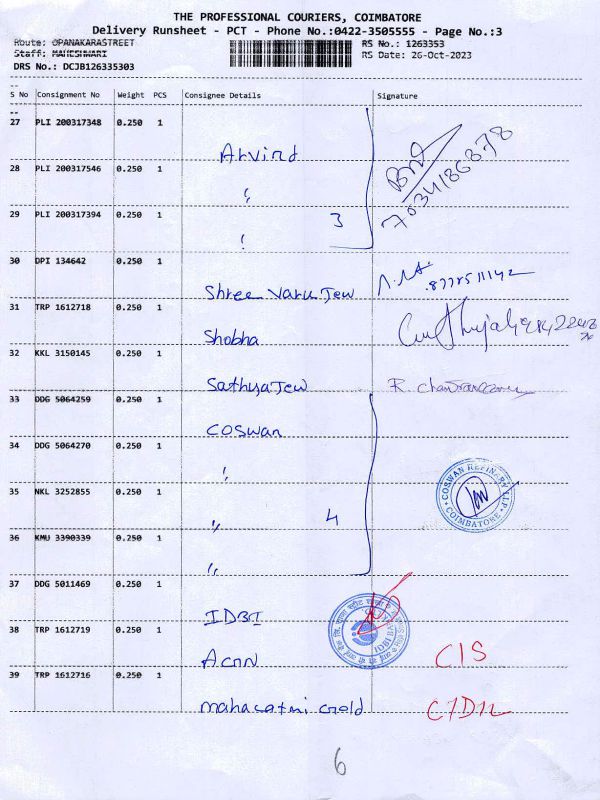 THE PROFESSIONAL COURIERS, COIMBATORE
Delivery Runsheet - PCT - Phone No.:0422-3505555 - Page No.:3
Route: OPANAKARASTREET
Staff: MAHESHWARI
DRS No.: DCJB126335303
RS No.: 1263353
RS Date: 26-Oct-2023
S No Consignment No Weight PCS Consignee Details Signature
27 PLI 200317348 0.250 1 Arvind
28 PLI 200317546 0.250 1 "
29 PLI 200317394 0.250 1 " 3
30 DPI 134642 0.250 1 Shree Varu Jew
31 TRP 1612718 0.250 1 Shobha
32 KKL 3150145 0.250 1 Sathya Jew R.
33 DDG 5064259 0.250 1 Coswan
34 DDG 5064270 0.250 1 "
35 NKL 3252855 0.250 1 " 4
COSWAN REFINERY LLP
COIMBATORE
36 KMU 3390339 0.250 1 "
37 DDG 5011469 0.250 1 IDBI
38 TRP 1612719 0.250 1 CIS
39 TRP 1612716 0.250 1 Gold
6